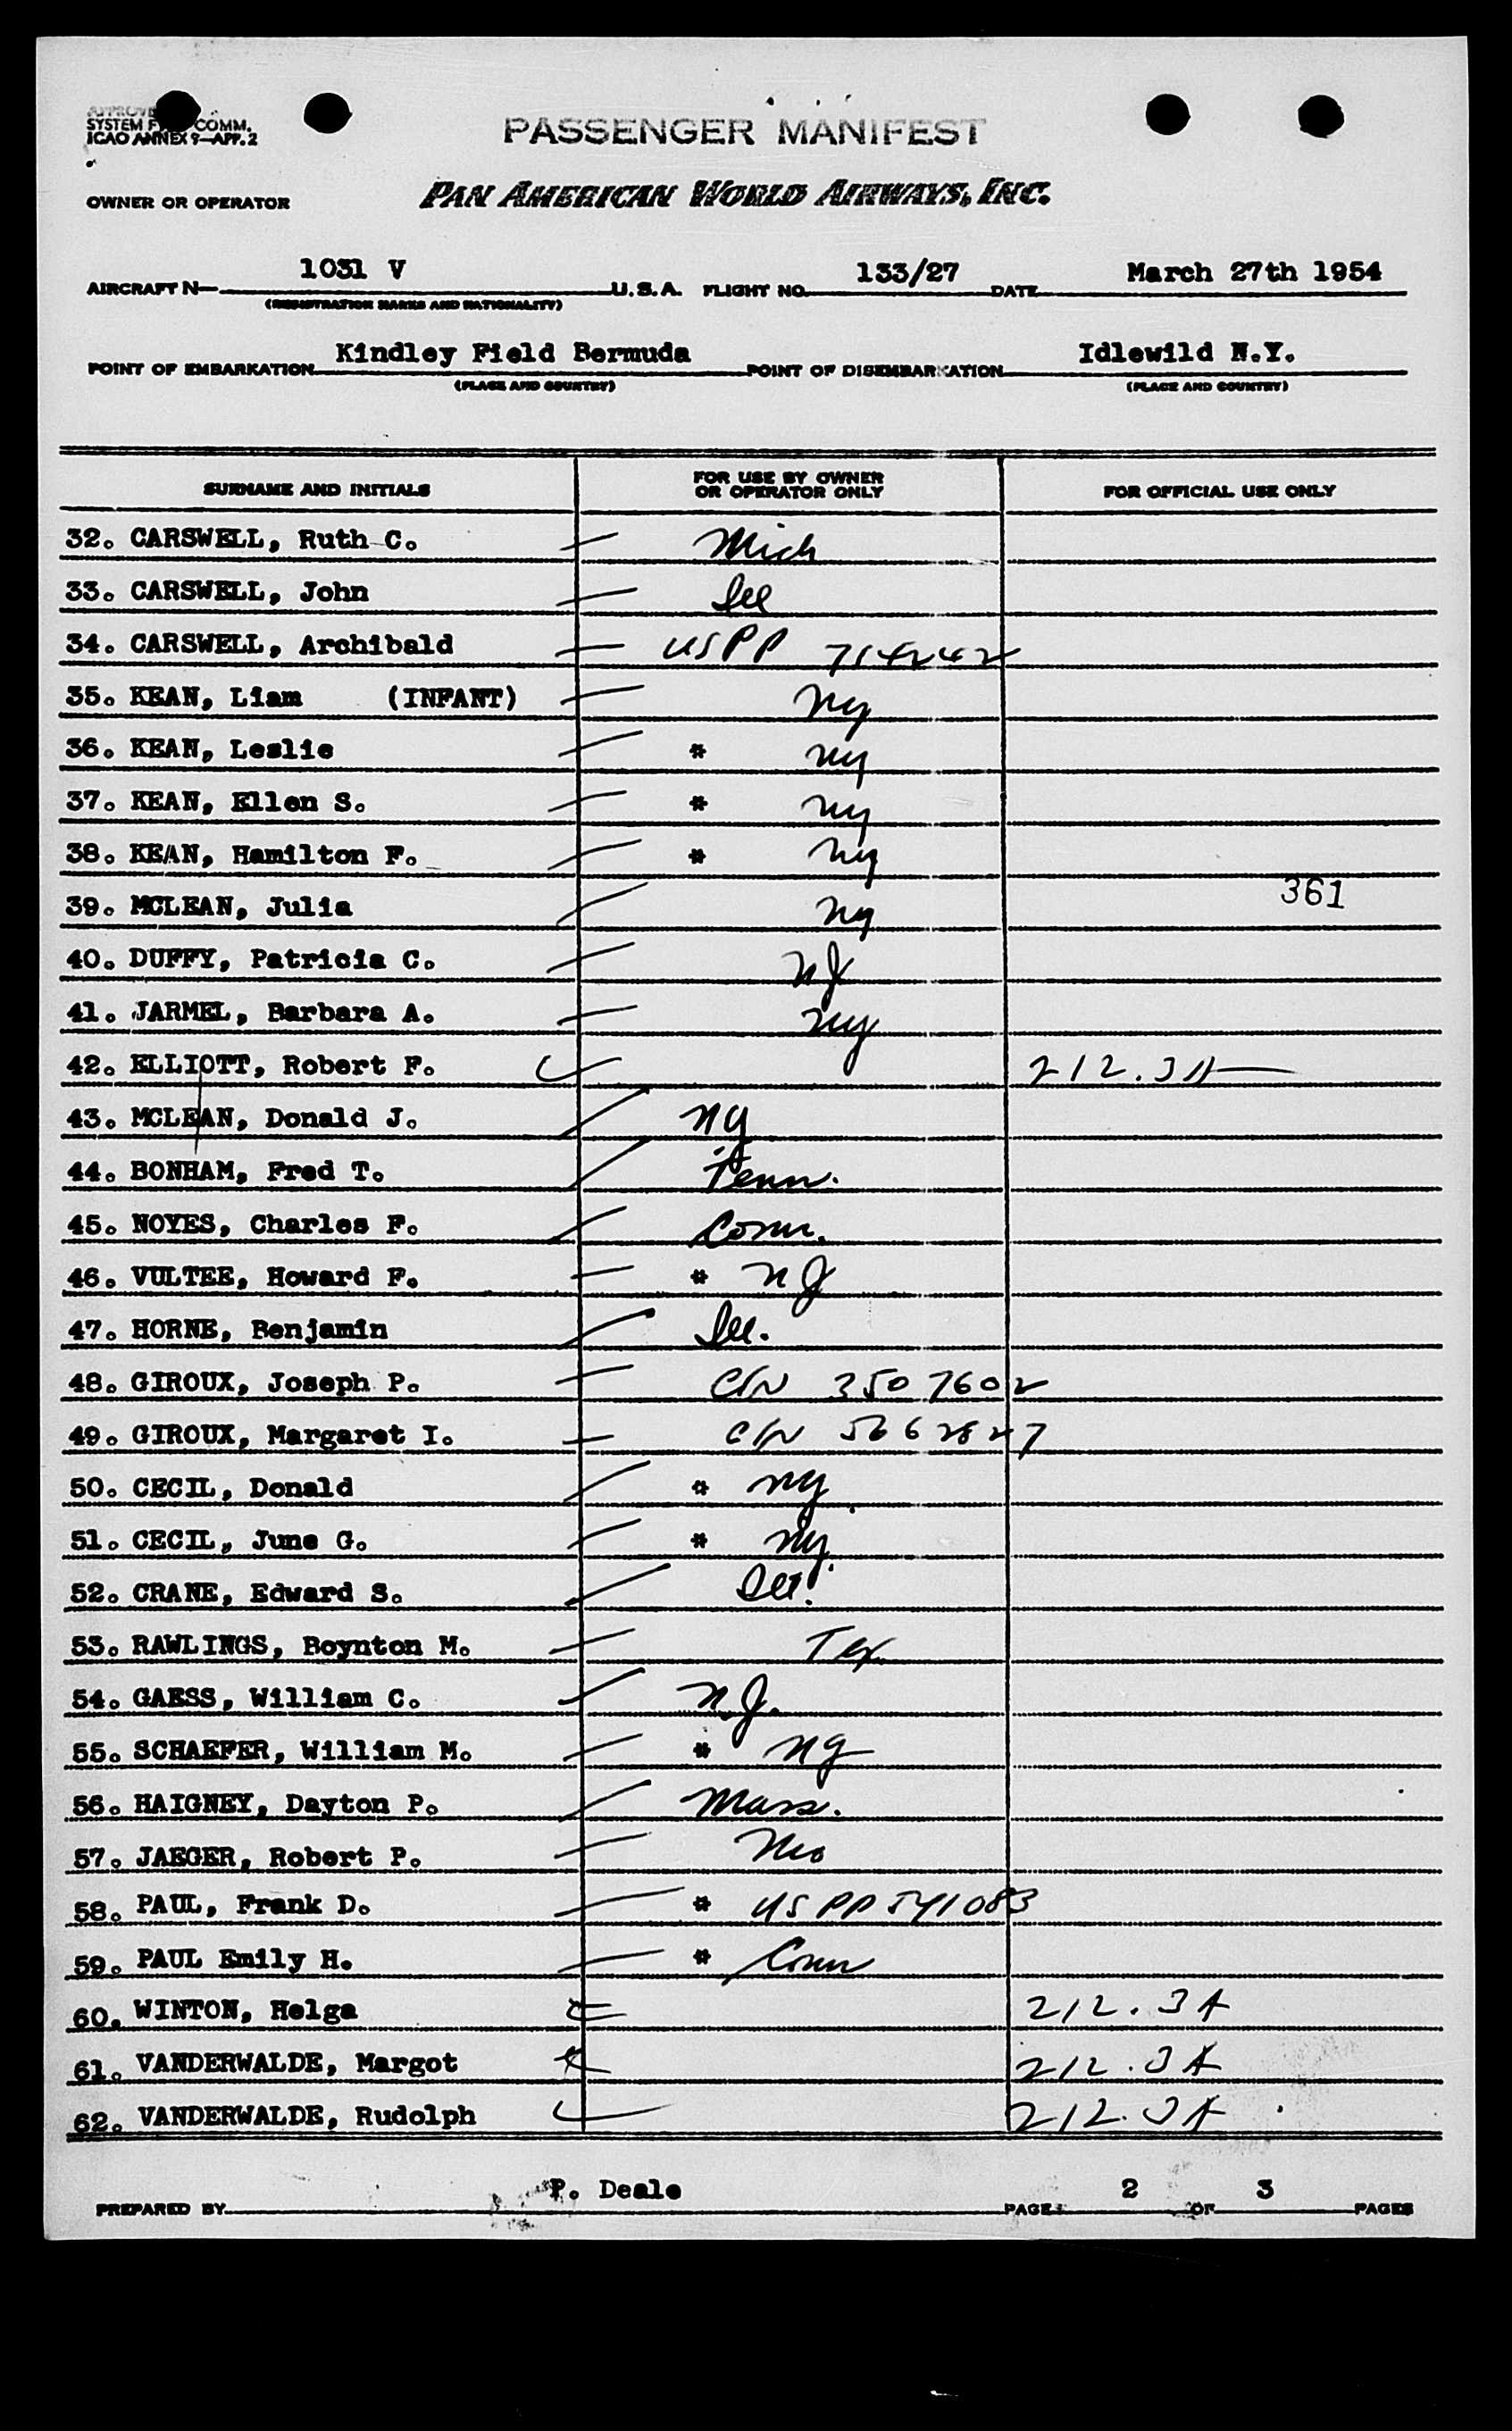 SYSTEM F COMM.
ICAO ANNEX 9—APP. 2
PASSENGER MANIFEST
OWNER OR OPERATOR PAN AMERICAN WORLD AIRWAYS, INC.
AIRCRAFT N— 1031 V U.S.A. FLIGHT NO. 133/27 DATE March 27th 1954
(REGISTRATION MARKS AND NATIONALITY)
POINT OF EMBARKATION Kindley Field Bermuda POINT OF DISEMBARKATION Idlewild N.Y.
(PLACE AND COUNTRY) (PLACE AND COUNTRY)
SURNAME AND INITIALS FOR USE BY OWNER OR OPERATOR ONLY FOR OFFICIAL USE ONLY
32. CARSWELL, Ruth C. Mich
33. CARSWELL, John Ill
34. CARSWELL, Archibald USPP 714242
35. KEAN, Liam (INFANT) NY
36. KEAN, Leslie * NY
37. KEAN, Ellen S. * NY
38. KEAN, Hamilton F. * NY
39. MCLEAN, Julia NY 361
40. DUFFY, Patricia C. NJ
41. JARMEL, Barbara A. NY
42. ELLIOTT, Robert F. 212.3A
43. MCLEAN, Donald J. NY
44. BONHAM, Fred T. Tenn.
45. NOYES, Charles F. Conn.
46. VULTEE, Howard F. * NJ
47. HORNE, Benjamin Ill.
48. GIROUX, Joseph P. C/N 3507602
49. GIROUX, Margaret I. C/N 5662827
50. CECIL, Donald * NY
51. CECIL, June G. * NY
52. CRANE, Edward S. Ill.
53. RAWLINGS, Boynton M. Tex
54. GAESS, William C. N.J.
55. SCHAEFER, William M. * NY
56. HAIGNEY, Dayton P. Mass.
57. JAEGER, Robert P. Mo
58. PAUL, Frank D. * US PP 541083
59. PAUL Emily H. * Conn
60. WINTON, Helga 212.3A
61. VANDERWALDE, Margot 212.3A
62. VANDERWALDE, Rudolph 212.3A
PREPARED BY P. Deale PAGE 2 OF 3 PAGES